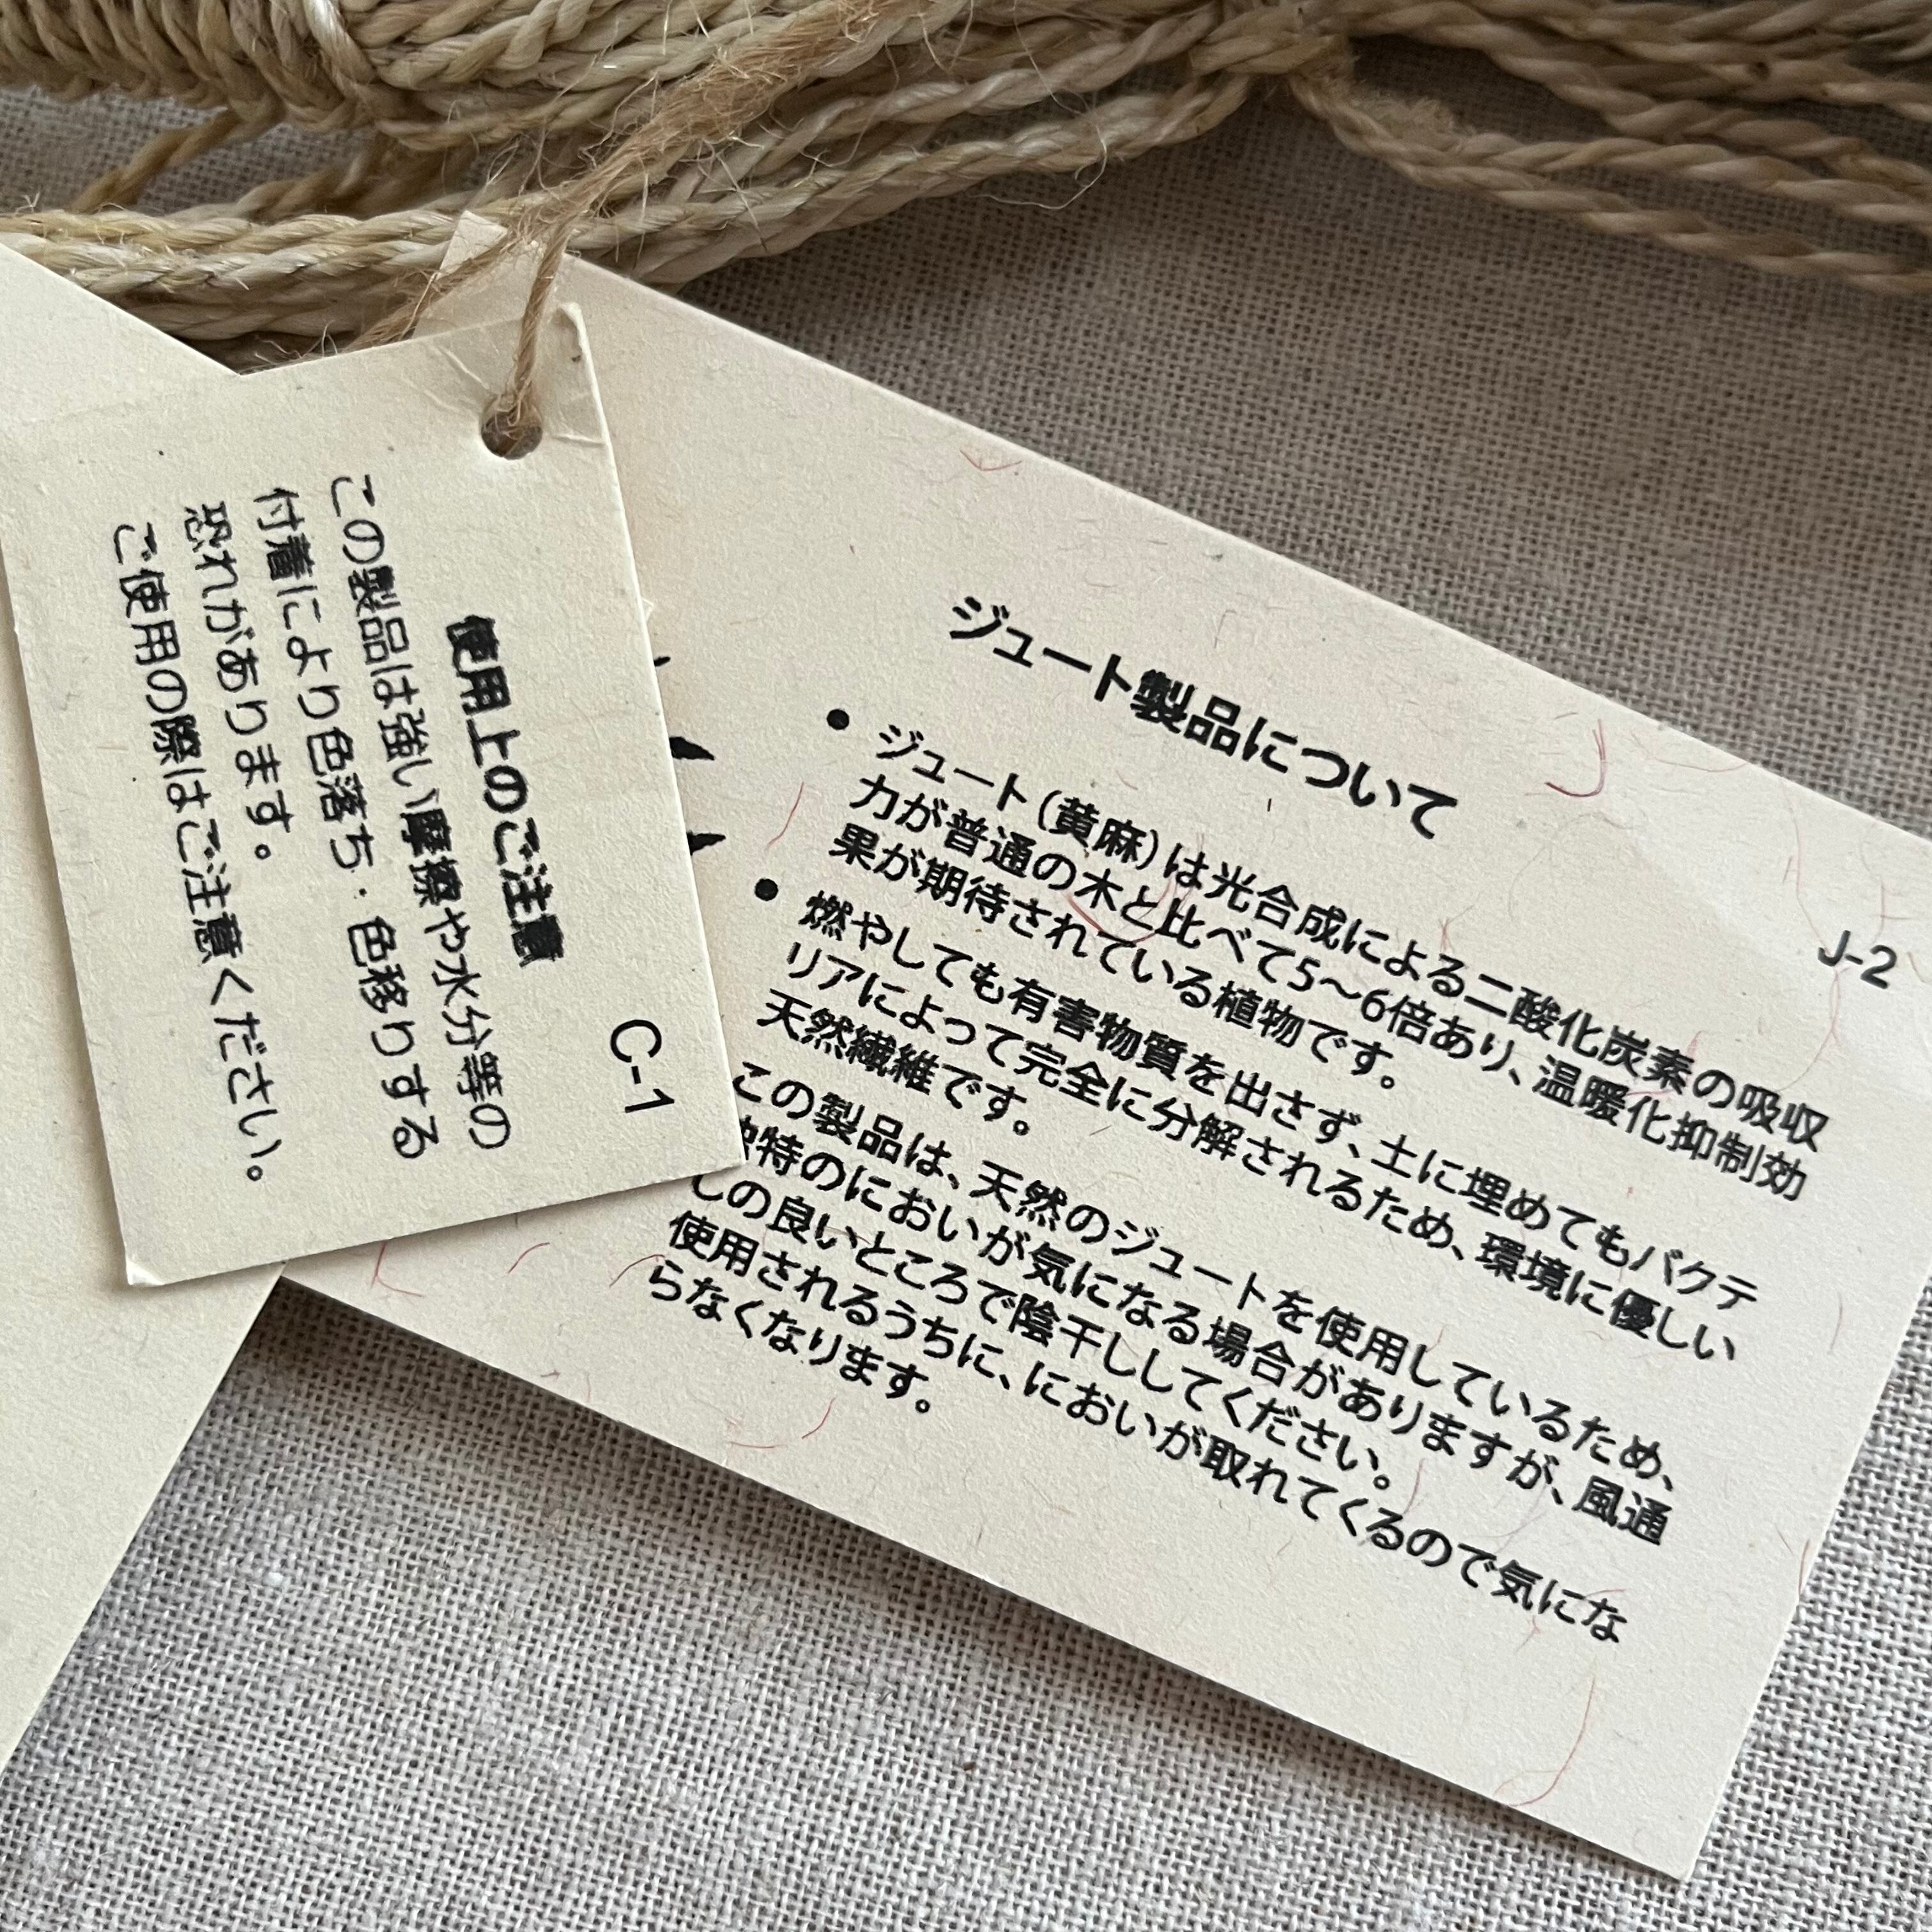 C-1
使用上のご注意
この製品は強い摩擦や水分等の
付着により色落ち・色移りする
恐れがあります。
ご使用の際はご注意ください。
J-2
ジュート製品について
● ジュート(黄麻)は光合成による二酸化炭素の吸収
力が普通の木と比べて5〜6倍あり、温暖化抑制効
果が期待されている植物です。
● 燃やしても有害物質を出さず、土に埋めてもバクテ
リアによって完全に分解されるため、環境に優しい
天然繊維です。
この製品は、天然のジュートを使用しているため、
特のにおいが気になる場合がありますが、風通
しの良いところで陰干ししてください。
使用されるうちに、においが取れてくるので気にな
らなくなります。